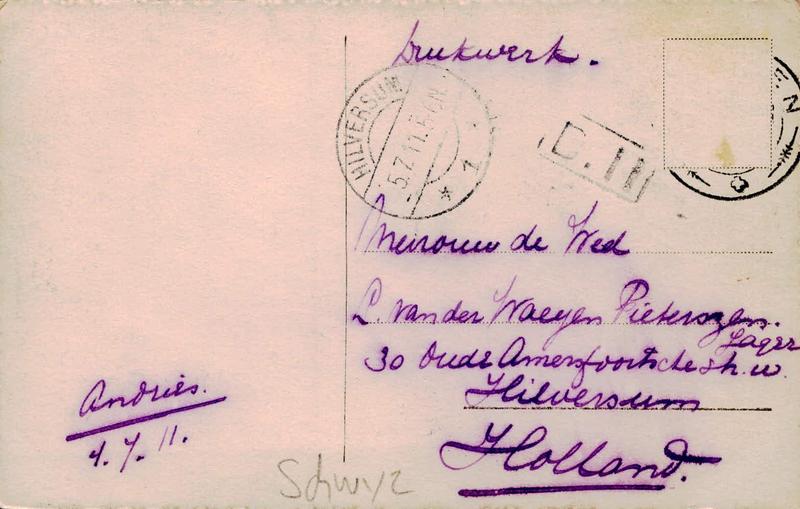 Drukwerk.
HILVERSUM
5.7.11.5-6N
* 1
D.III
N
Mevrouw de Wed
P. van der Waeyen Pieterszen.
Lager
30 Oude Amersfoortsche str. w.
Hilversum
Holland.
Andries.
4.7.11.
Schwyz